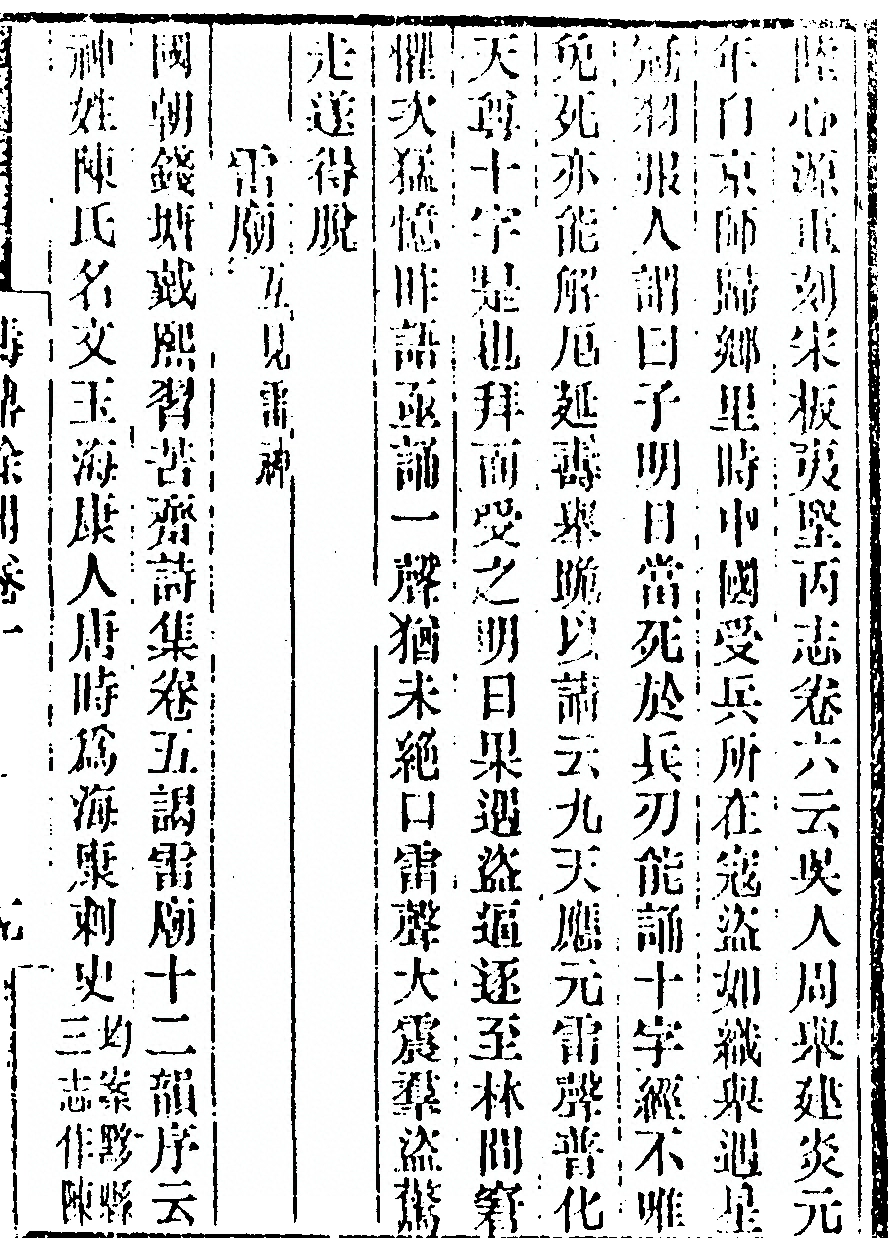 陸心源重刻宋板夷堅丙志卷六云吳人周舉建炎元
年自京師歸鄉里時中國受兵所在寇盜如織舉遇星
冠羽服人謂曰子明日當死於兵刃能誦十字經不唯
免死亦能解厄延壽舉跪以請云九天應元雷聲普化
天尊十字是也拜而受之明日果遇盜逼逐至林間窘
懼次猛憶昨語亟誦一聲猶未絕口雷聲大震羣盜驚
走遂得脫
雷廟互見雷神
國朝錢塘戴熙習苦齋詩集卷五謁雷廟十二韻序云
神姓陳氏名文玉海康人唐時爲海康刺史均案黟縣
三志作陳
卷一